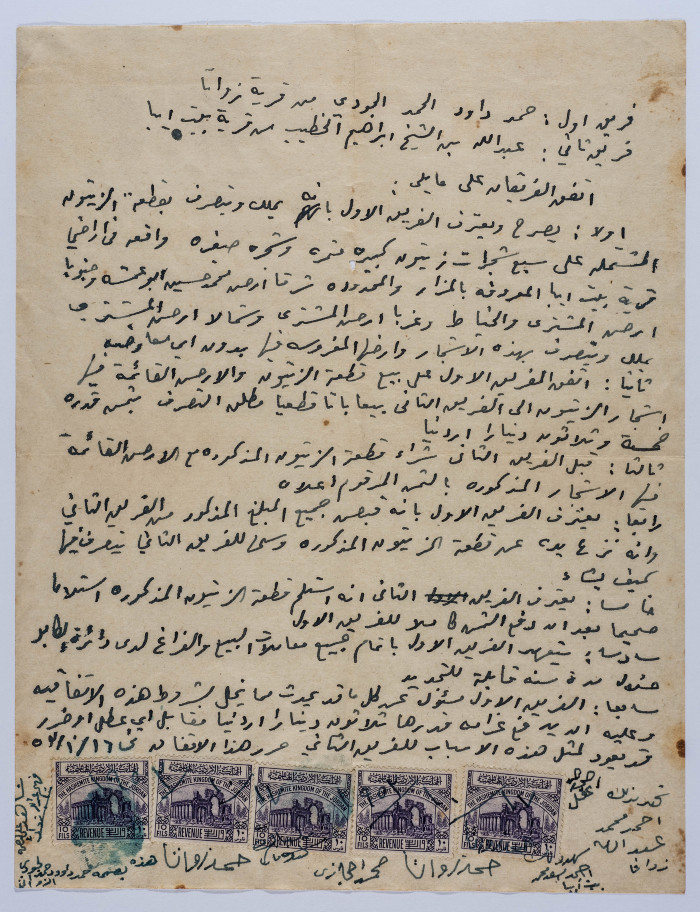 فريق اول : حمد داود الحمد الجودي من قرية زواتا
فريق ثاني : عبدالله بن الشيخ ابراهيم الخطيب من قرية بيت ايبا
اتفق الفريقان على مايلي :
اولا : يصرح ويعترف الفريق الاول بانه يملك ويتصرف بقطعة الزيتون
المشتمله على سبع شجرات زيتون كبيره وشجره صغيره واقعه في اراضي
قرية بيت ايبا المعروفه بالمزار والمحدوده شرقا ارض محمد حسين وجنوبا
ارض المشتري والخياط وغربا ارض المشتري وشمالا ارض المشتري
يملك ويتصرف بهذه الاشجار وارضها المغروسه فيها بدون اي معارضه
ثانيا : اتفق الفريق الاول على بيع قطعة الزيتون والارض القائمة فيها
اشجار الزيتون الى الفريق الثاني بيعا باتا قطعيا مطلق التصرف بثمن قدره
خمسة وثلاثون دينارا اردنيا
ثالثا : قبل الفريق الثاني شراء قطعة الزيتون المذكوره مع الارض القائمة
فيها الاشجار المذكوره بالثمن المرقوم اعلاه
رابعا : يعترف الفريق الاول بانه قبض جميع المبلغ المذكور من الفريق الثاني
وانه نزع يده عن قطعة الزيتون المذكوره وسلمها للفريق الثاني يتصرف فيها
كيف يشاء
خامسا : يعترف الفريق الثاني انه استلم قطعة الزيتون المذكوره استلاما
صحيحا بعد ان دفع الثمن كاملا للفريق الاول
سادسا : يتعهد الفريق الاول باتمام جميع معاملات البيع والفراغ لدى دائرة الطابو
خلال مدة سنه قابلة للتمديد
سابعا : الفريق الاول مسؤول عن كل ما قد يحدث مما يخل بشروط هذه الاتفاقيه
وعليه ان يدفع غرامه قدرها ثلاثون دينارا اردنيا مقابل اي عطل او ضرر
قد يعود لمثل هذه الاسباب للفريق الثاني حرر هذا الاتفاق في ١٦/١/
THE HASHEMITE KINGDOM OF THE JORDAN
10 FILS REVENUE
THE HASHEMITE KINGDOM OF THE JORDAN
10 FILS REVENUE
THE HASHEMITE KINGDOM OF THE JORDAN
10 FILS REVENUE
THE HASHEMITE KINGDOM OF THE JORDAN
10 FILS REVENUE
THE HASHEMITE KINGDOM OF THE JORDAN
10 FILS REVENUE
شهد بذلك
احمد محمد
عبد الله
زواتا
هذه بصمة حمد داود